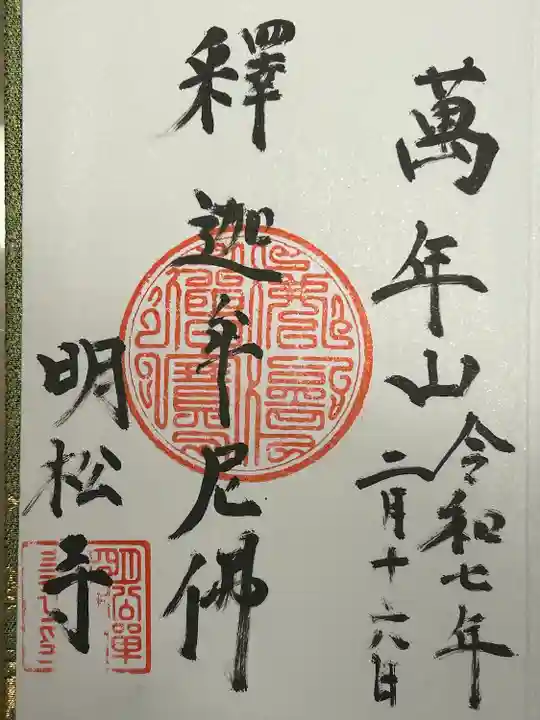 萬年山
令和七年
二月十六日
釋迦牟尼佛
明松寺